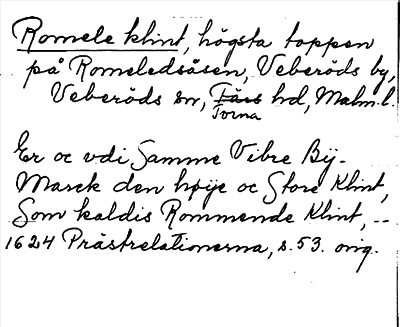 Romele klint, högsta toppen
på Romeledsåsen, Veberöds by,
Veberöds sn, Färs hd, Malm. l.
Torna
Er oc vdi Samme Vibre By-
Marck den høije oc Store Klint,
Som kaldis Rommende Klint, --
1624 Prästrelationerna, s. 53. orig.